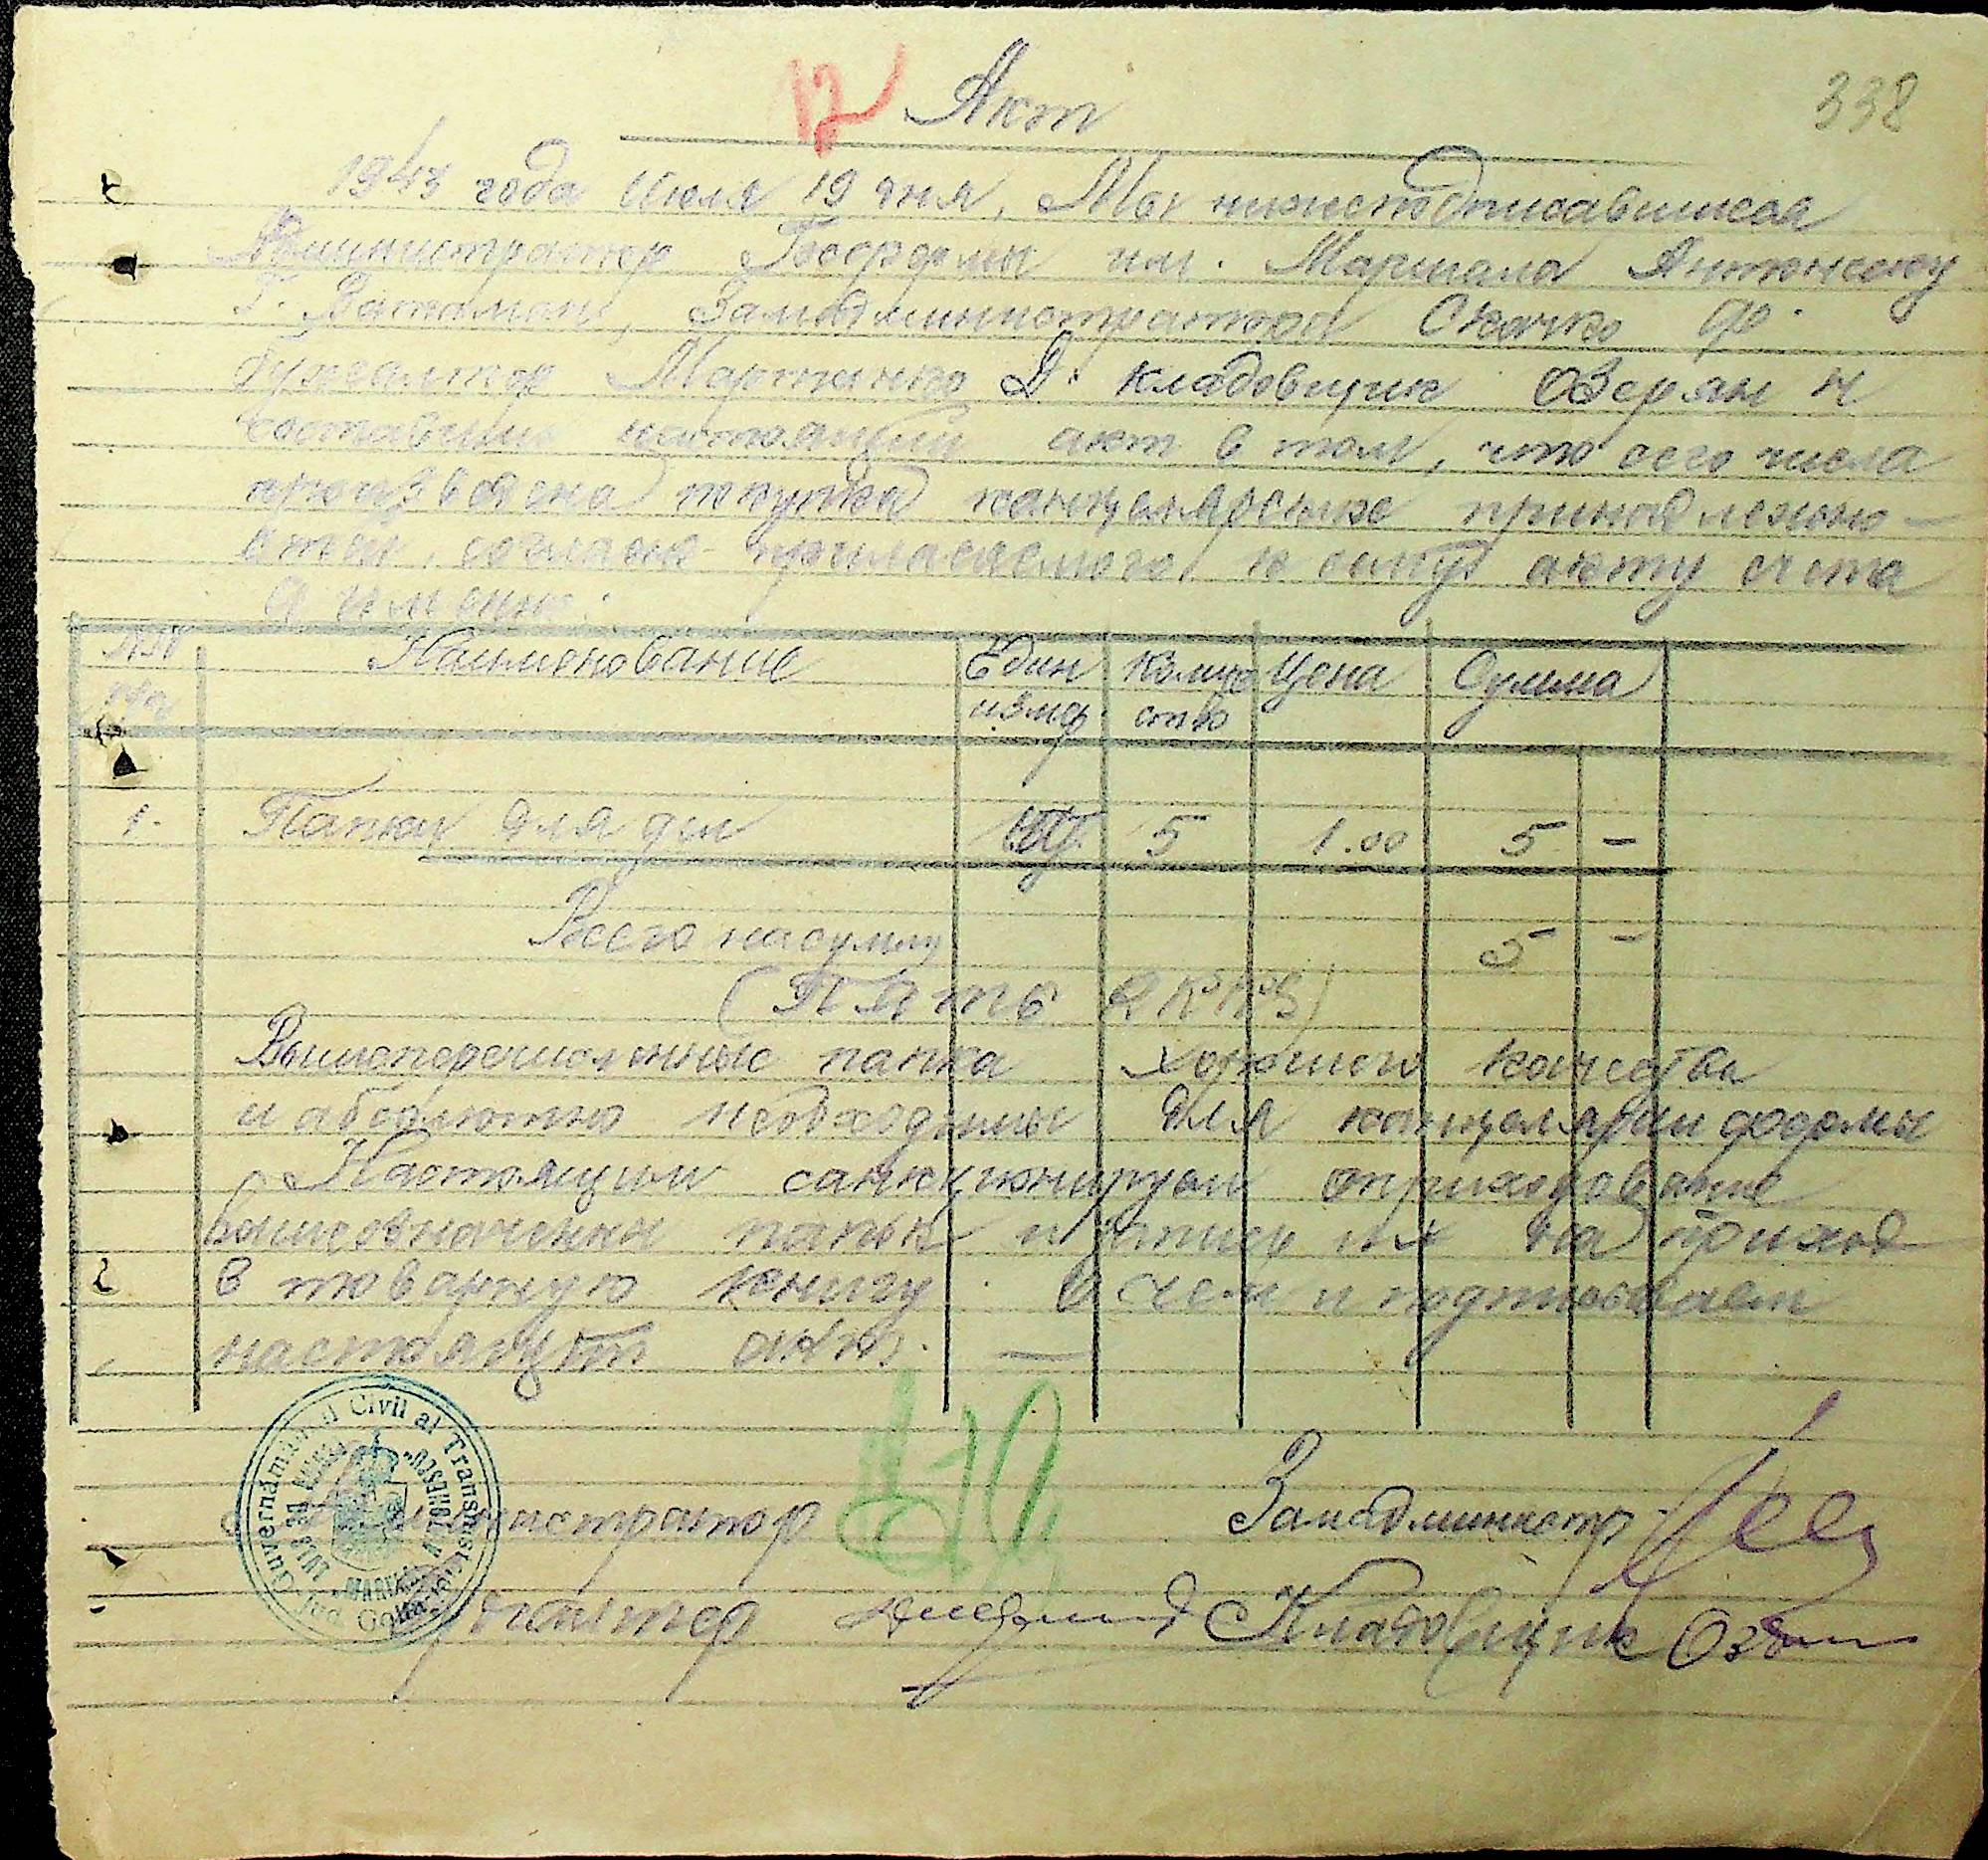 12 Акт
338
1943 года Июля 19 дня, Мы нижеподписавшиеся
Администратор Госфермы им. Маршала Антонеску
Г. Ватаман, Замадминистратора Скачко Ф.
бухгалтер Мартынко Д. кладовщик Озерян Н
составили настоящий акт в том, что сего числа
произведена покупка канцелярские принадлежно-
стей, согласно прилагаемого к сему акту счета
а именно:
№№ Наименование Един Количе Цена Сумма
п/п измер ство
1. Папки для дел шт. 5 1.00 5 –
Всего на сумму 5 –
(Пять RKKS)
Вышеперечисленные папка хорошего качества
и абсолютно необходимы для канцелярии фермы
Настоящим санкционируем оприходование
вышеозначенны папок и запись их на приход
в товарную книгу. В чем и подписываем
настоящий акт. —
Guvernământul Civil al Transnistriei
Jud. Golta
FERMA DE STAT "MAREȘAL ANTONESCU"
Администратор Замадминистр.
Бухгалтер Кладовщик